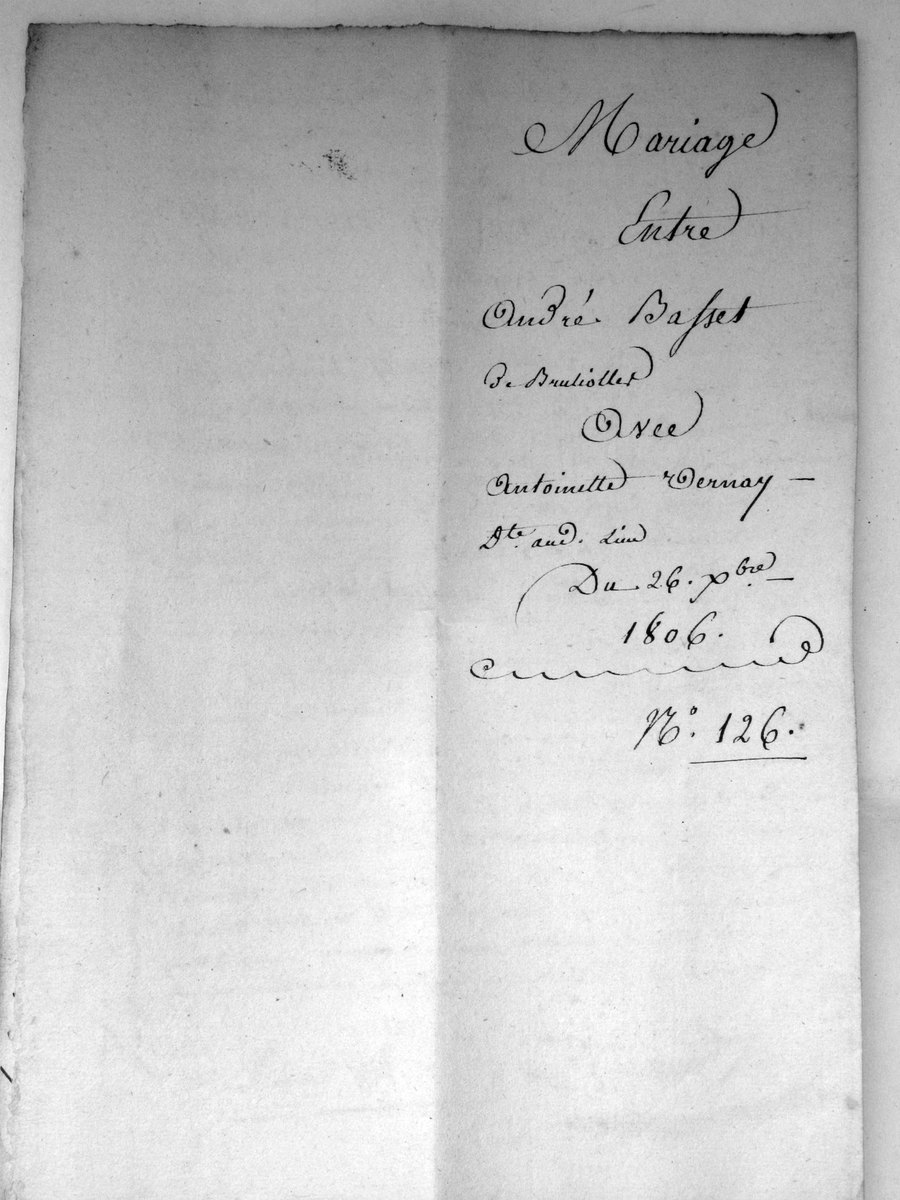 Mariage
Entre
André Basset
de Bruliolles
Avec
Antoinette Vernay —
Dte. aud. Lieu
Du 26. xbre. —
1806.
No. 126.